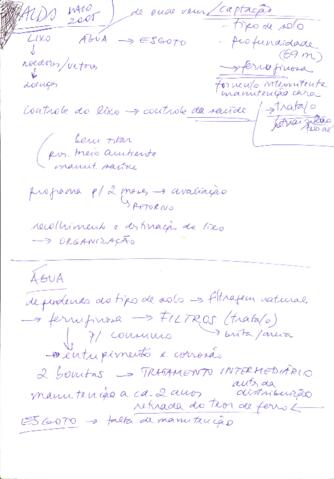 ALDS MAIO 2005
de onde vem/captação
LIXO
ÁGUA → ESGOTO
- tipo de solo
- profundidade (69m)
roedores/vetores
→ ferruginosa
doenças
manutenção cara
controle do lixo → controle da saúde
→ trata/o
bem estar
meio ambiente
manut. saúde
programa p/ 2 meses → avaliação
→ RETORNO
recolhimento e destinação do lixo
→ ORGANIZAÇÃO
ÁGUA
dependendo do tipo de solo → filtragem natural
→ ferruginosa → FILTROS (trata/o)
p/ consumo
→ brita/areia
→ entupimento e corrosão
2 bombas → TRATAMENTO INTERMEDIÁRIO
antes da distribuição
manutenção a cd. 2 anos
retirada do teor de ferro ←
ESGOTO → falta de manutenção